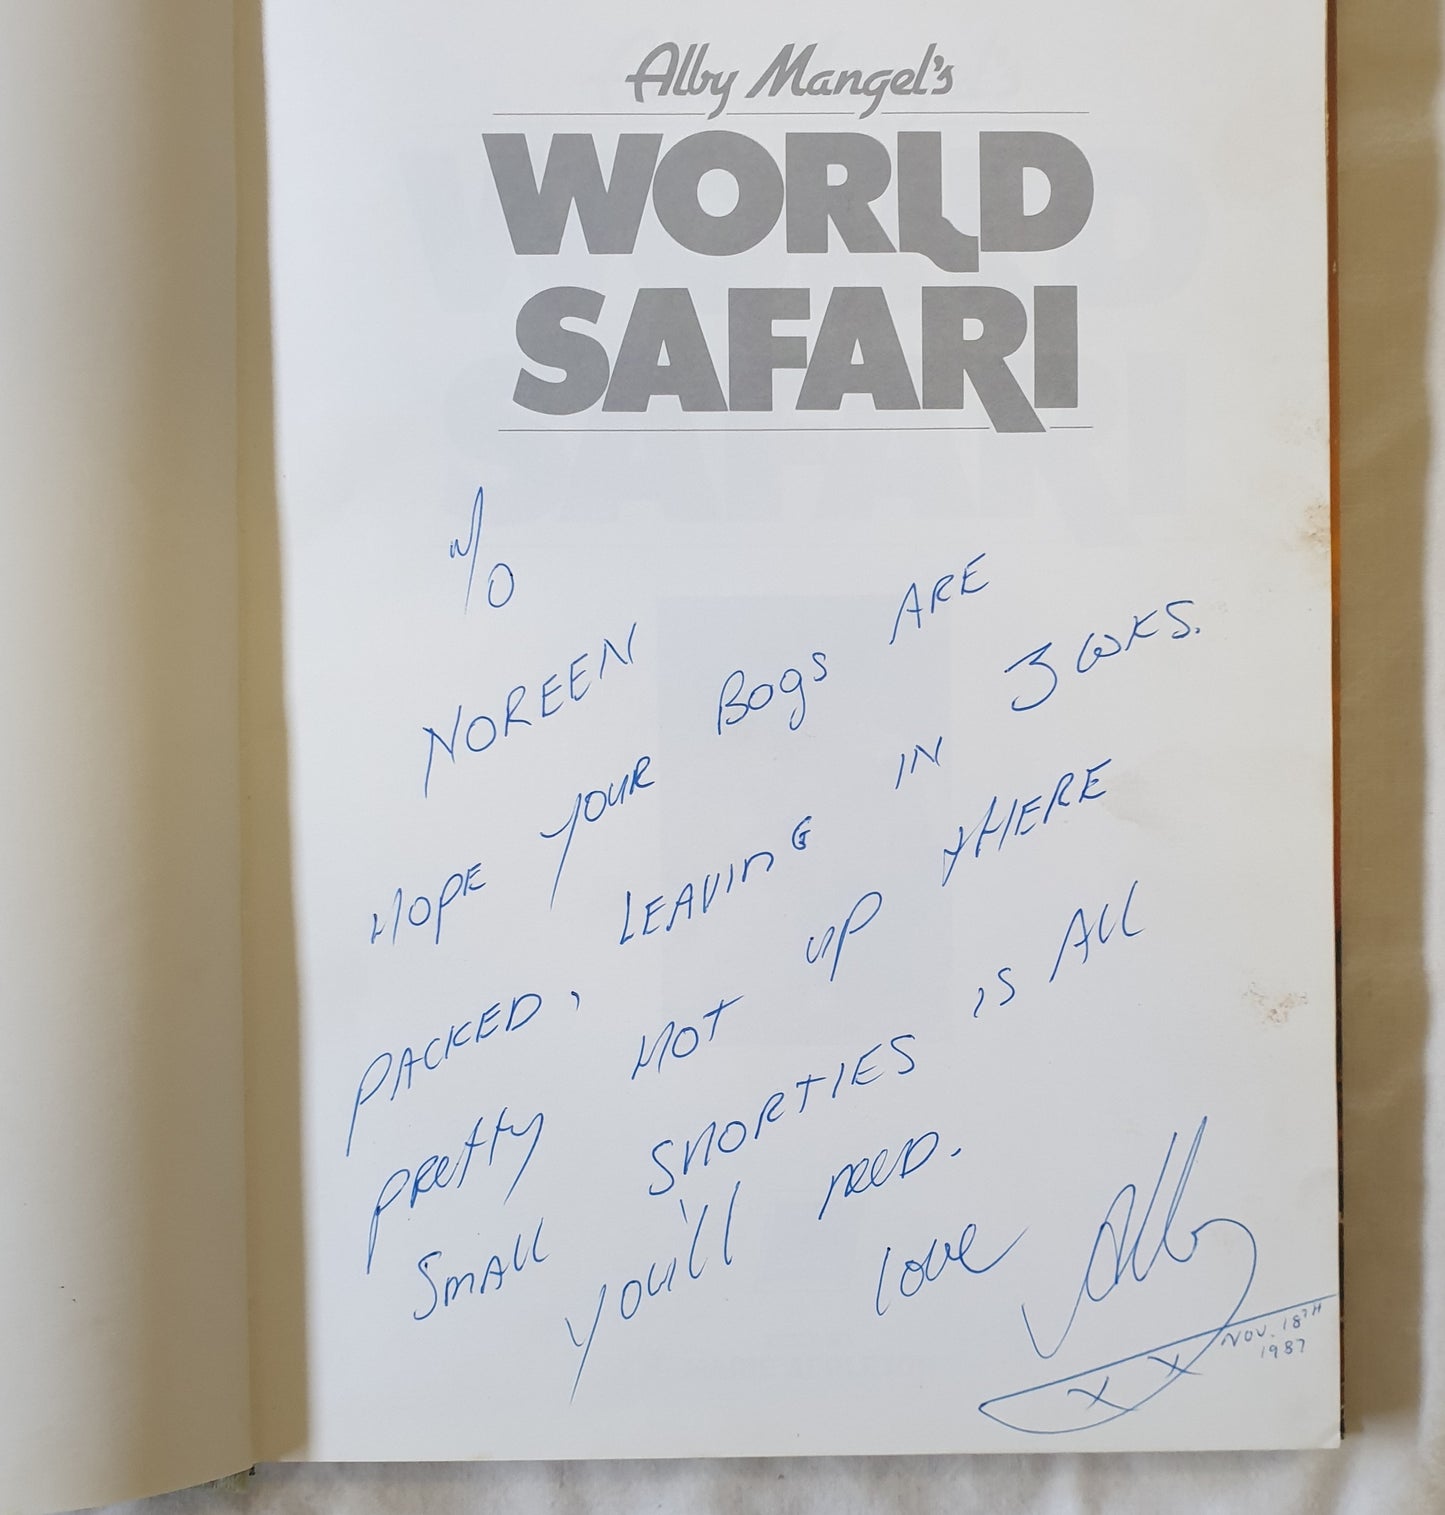 Alby Mangel's
WORLD
SAFARI
NOREEN
HOPE YOUR BOGS ARE
PACKED, LEAVING IN 3 WKS.
PRETTY HOT UP THERE
SMALL SHORTIES IS ALL
YOU'LL NEED.
LOVE Alby
XX
NOV. 18TH
1987